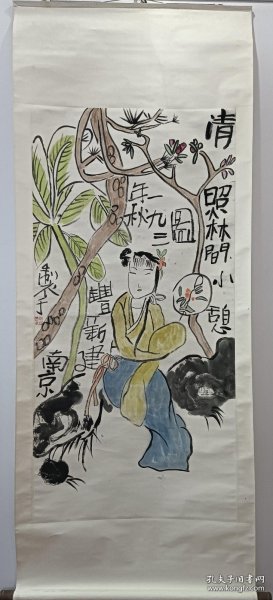 清照林間小憩
圖
一九二
年秋
豐新建
製于
南京
孔夫子旧书网